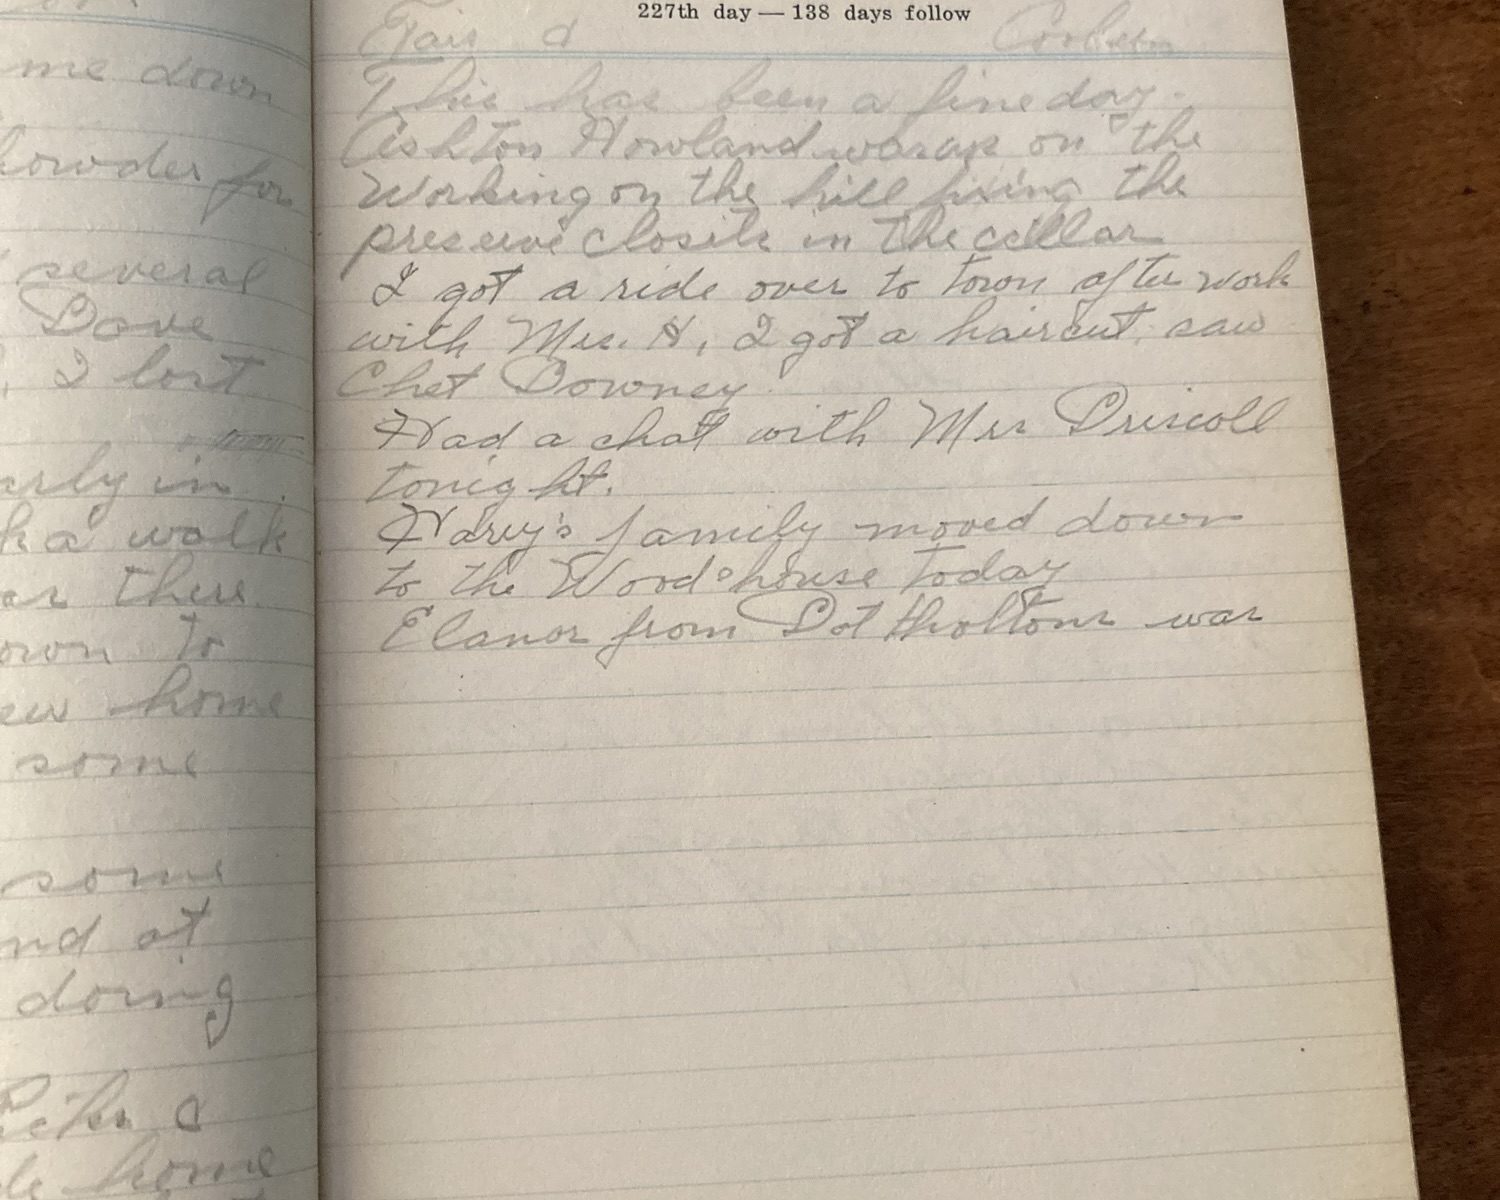 me down
for
several
Dave
I lost
in
a walk
there
to
home
some
some
at
doing
home
227th day — 138 days follow
Fair
This has been a fine day.
Ashton Howland was on the
Working on the hill fixing the
preserve closets in the cellar
I got a ride over to town after work
with Mrs. H, I got a haircut, saw
Chet Downey
Had a chat with Mrs Driscoll
tonight.
family moved down
to the Wood house today
Elanor from Dot was